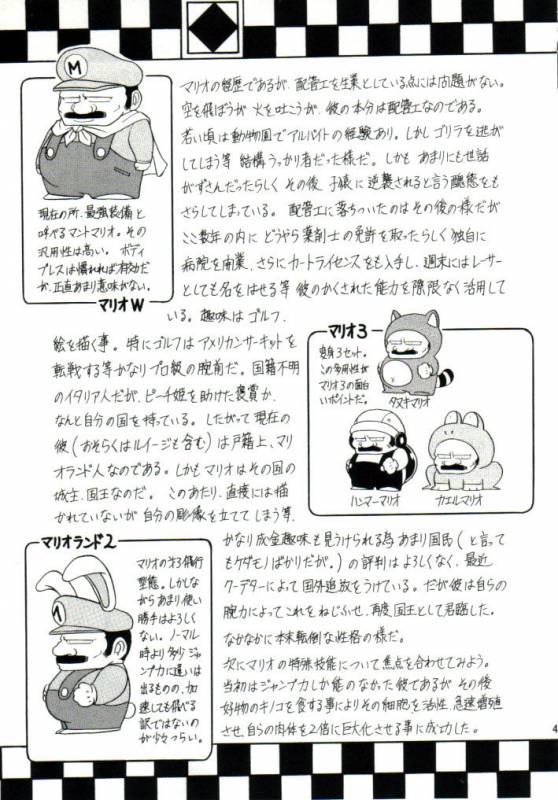 マリオの経歴であるが、配管工を生業としている点には問題がない。
空を飛ぼうが火を吐こうが、彼の本分は配管工なのである。
若い頃は動物園でアルバイトの経験あり。しかしゴリラを逃が
してしまう等 結構うっかり者だった様だ。しかも あまりにも世話
がずさんだったらしく その後 子猿に逆襲されると言う醜態をも
さらしてしまっている。 配管工に落ちついたのはその後の様だが
ここ数年の内に どうやら薬剤士の免許を取ったらしく 独自に
病院を開業、さらにカートライセンスをも入手し、週末にはレーサー
としても名をはせる等 彼のかくされた能力を際限なく活用して
いる。趣味はゴルフ、
M
現在の所、最強装備と
呼べるマントマリオ。その
汎用性は高い。 ボディ
プレスは慣れれば有効だ
が、正直あまり意味がない。
マリオW
絵を描く事。 特にゴルフは アメリカンサーキットを
転戦する等かなりプロ級の腕前だ。国籍不明
のイタリア人だが、ピーチ姫を助けた褒賞か、
なんと自分の国を持っている。したがって現在の
彼(おそらくはルイージも含む)は戸籍上、マリ
オランド人なのである。しかもマリオはその国の
城主、国王なのだ。 このあたり、直接には描
かれていないが 自分の彫像を立ててしまう等、
マリオ3
変身3セット。
この多用性が
マリオ3の面白
いポイントだ。
タヌキマリオ
ハンマーマリオ
カエルマリオ
マリオランド2
M
マリオの第3飛行
型態。しかしな
がらあまり使い
勝手はよろし
くない。ノーマル
時より多少ジャ
ンプ力に違いは
出るものの、加
速しても飛べる
訳ではないの
が少々つらい。
かなり成金趣味も見うけられる為 あまり国民(と言って
もケダモノばかりだが。)の評判はよろしくなく、最近
クーデターによって国外追放をうけている。だが彼は自らの
腕力によってこれをねじふせ、再度国王として君臨した。
なかなかに本末転倒な性格の様だ。
次にマリオの特殊技能について焦点を合わせてみよう。
当初はジャンプ力しか能のなかった彼であるが その後
好物のキノコを食する事によりその細胞を活性、急速増殖
させ、自らの肉体を2倍に巨大化させる事に成功した。
4